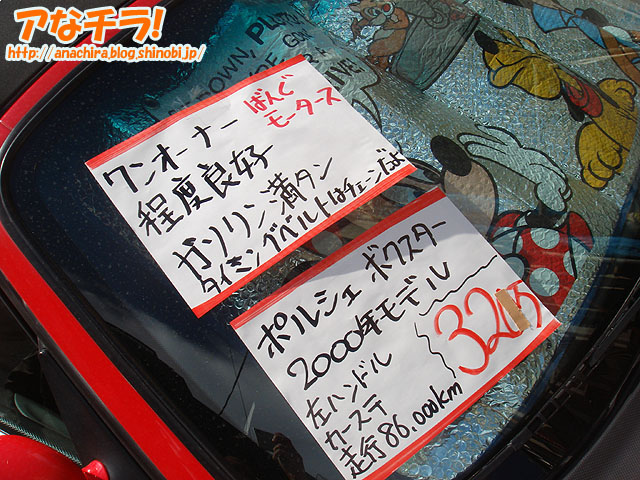 アなチラ!
http://anachira.blog.shinobi.jp/
TOWN, PLUTO
ワンオーナー
ばんぐ
モータース
程度良好
ガソリン満タン
タイミングベルトはチェーンだよ
ポルシェ ボクスター
2000年モデル
左ハンドル
カーステ
走行86,000km
32